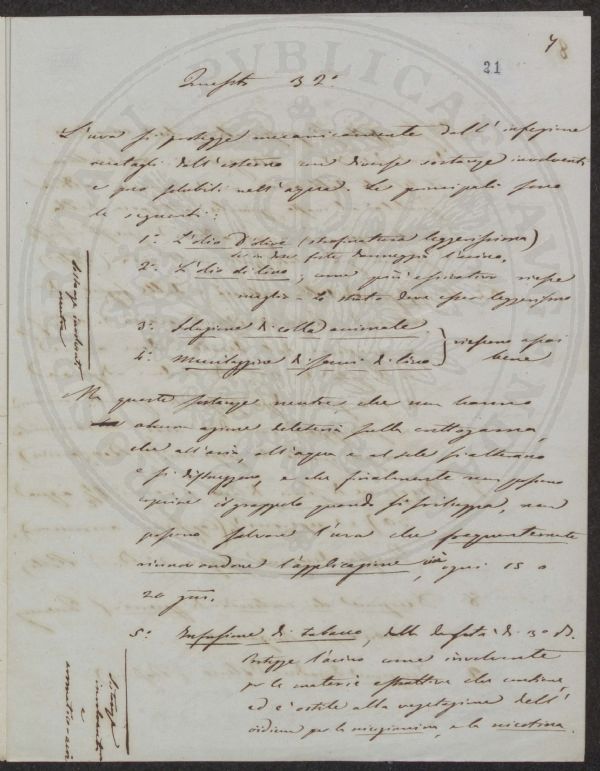 7
21
Quesito 32°
L'uva si protegge meccanicamente dall'infezione
dell'esterno con diverse sostanze involventi
e poco solubili nell'acqua. Le principali sono
le seguenti:
1° L'olio d'olive (strofinatura leggerissima)
2° L'olio di lino, come più essicativo riesce
meglio - Lo strato deve esser leggerissimo
3° Soluzione di colla animale
4° Mucillaggine di semi di lino } riescono assai bene
Sostanze involventi neutre
Ma queste sostanze neutre, che non hanno
alcuna azione deleteria sulla crittogama,
che all'aria, all'acqua e al sole si alterano
e si distruggono, e che finalmente non possono
coprire il grappolo quando si sviluppa, non
possono salvare l'uva che frequentemente
rinnovandone l'applicazione, ogni 15 o
20 gni.
5° Infusione di tabacco, della densità di 3° B.
Protegge l'acino come involvente
per le materie estrattive che contiene,
ed è ostile alla vegetazione dell'
oidium per la nicozianina, e la nicotina.
Sostanze involventi e